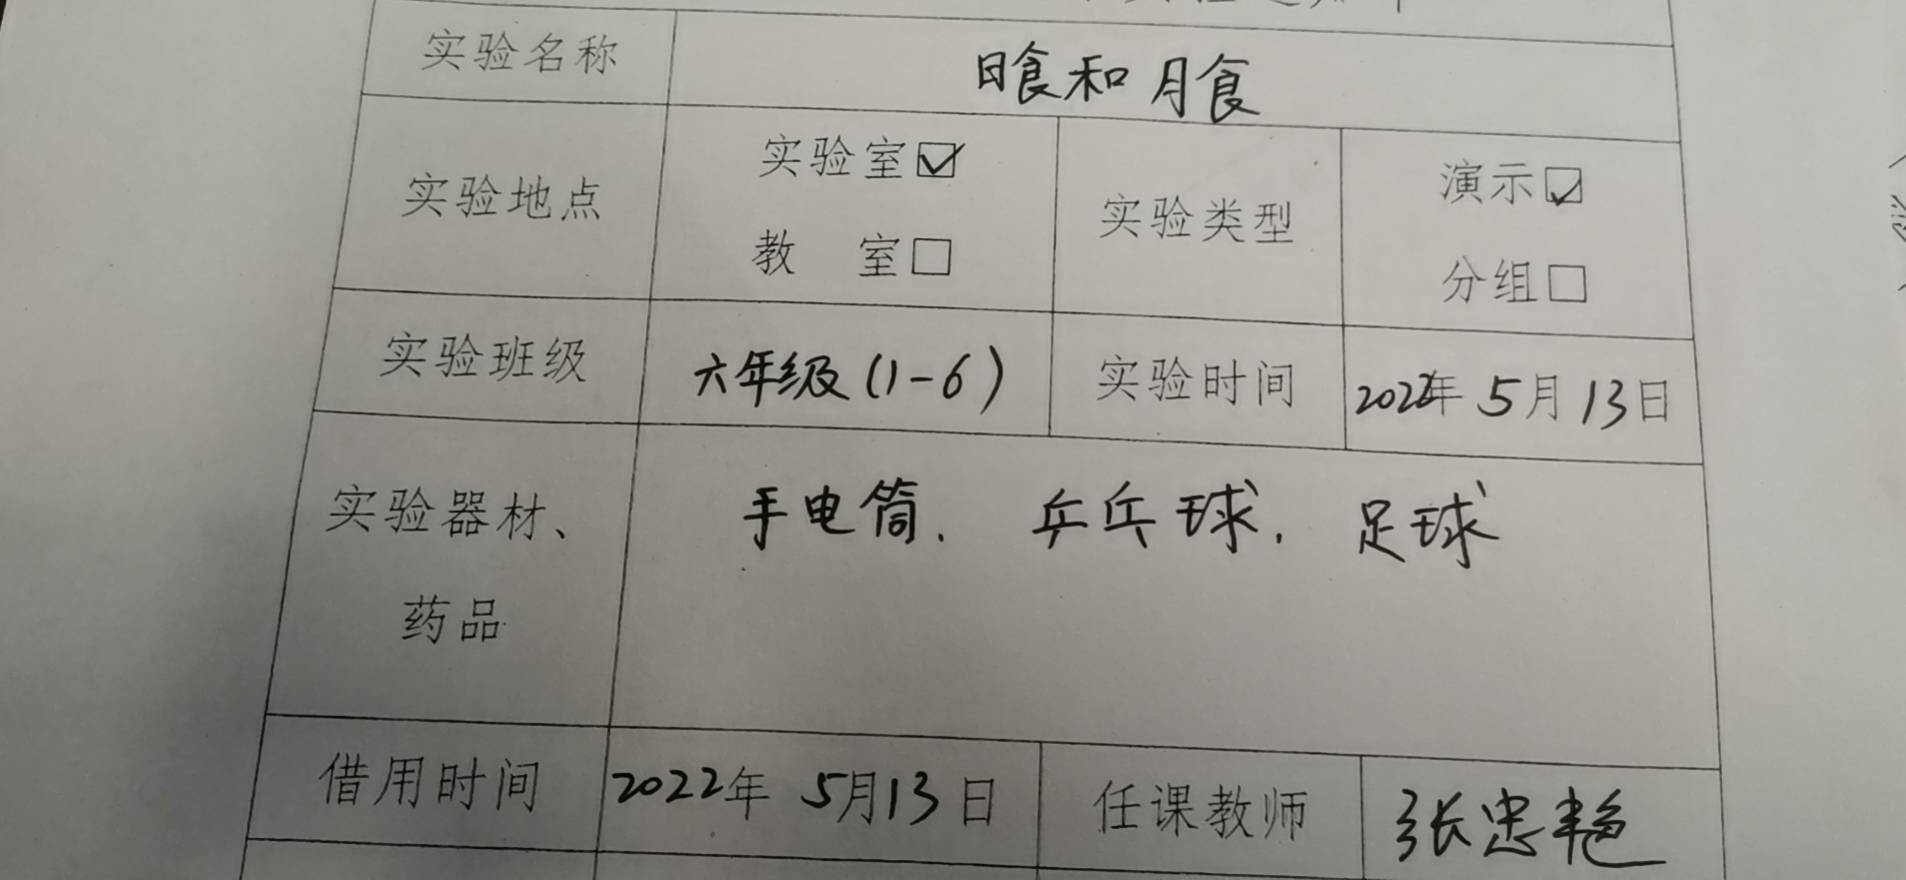 实验名称 日食和月食
实验地点 实验室☑ 教 室□ 实验类型 演示☑ 分组□
实验班级 六年级(1-6) 实验时间 2022年 5月13日
实验器材、药品 手电筒. 乒乓球. 足球
借用时间 2022年 5月13日 任课教师 张忠艳